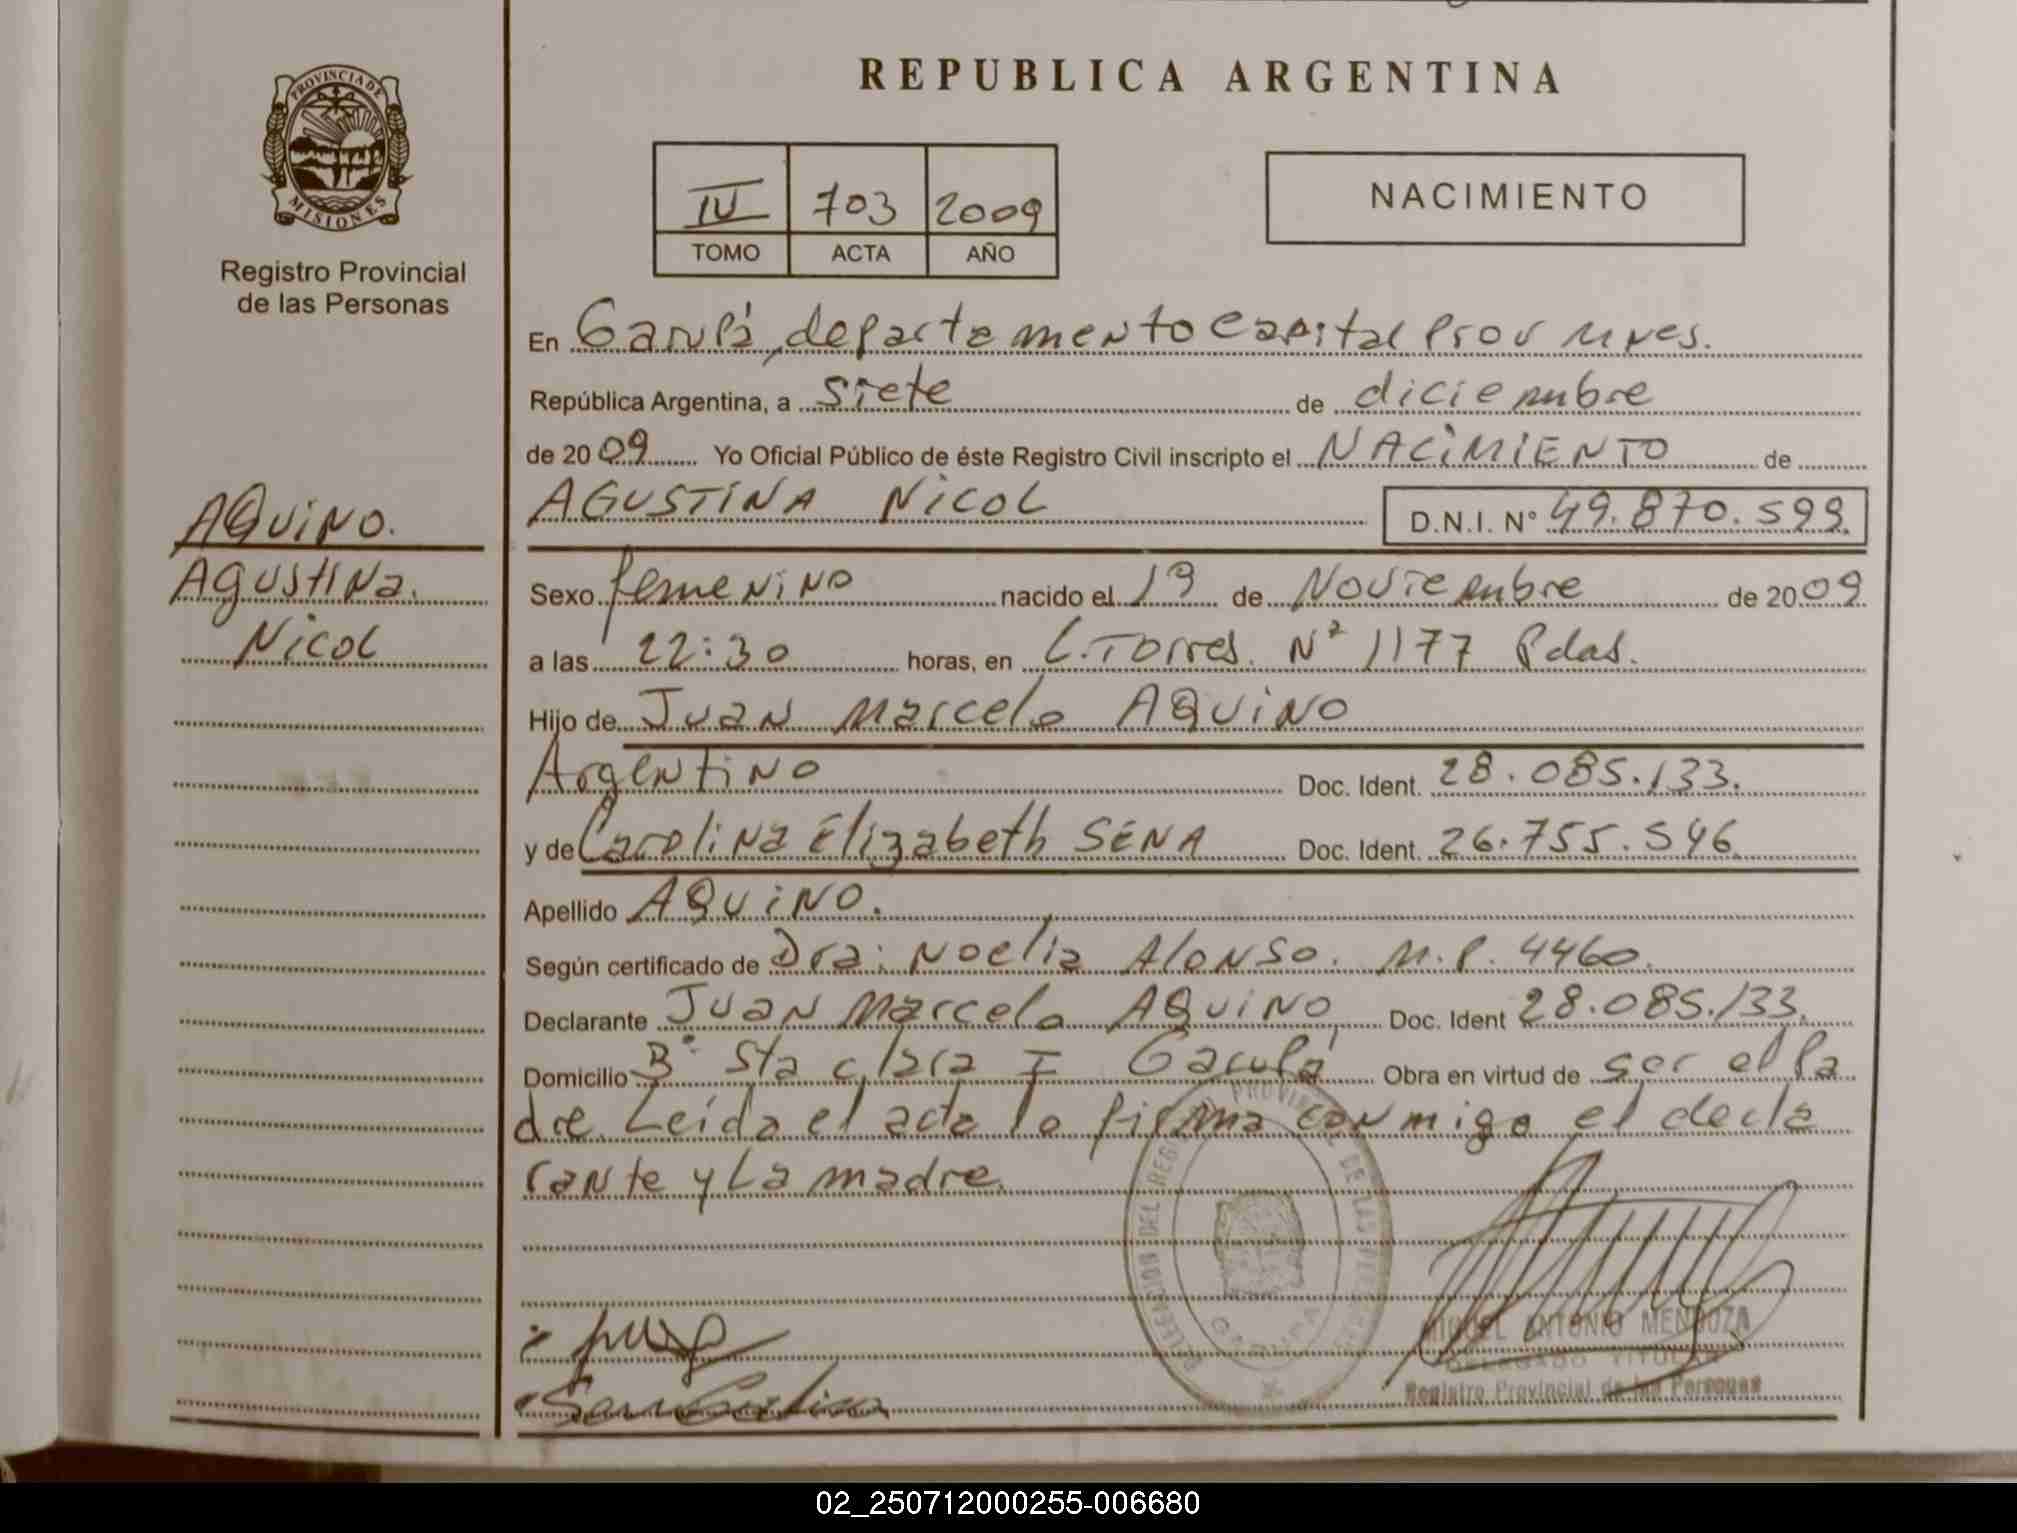 REPUBLICA ARGENTINA
PROVINCIA DE
MISIONES
Registro Provincial
de las Personas
IV 703 2009
TOMO ACTA AÑO
NACIMIENTO
En Garupá, departamento Capital Prov Mnes.
República Argentina, a siete de diciembre
de 2009 Yo Oficial Público de éste Registro Civil inscripto el NACIMIENTO de
AGUSTINA NICOL D.N.I. N° 49.870.599
AQUINO.
Agustina.
Nicol
Sexo femenino nacido el 19 de Noviembre de 2009
a las 22:30 horas, en L. Torres. Nº 1177 Pdas.
Hijo de Juan Marcelo AQUINO
Argentino Doc. Ident. 28.085.133.
y de Carolina Elizabeth SENA Doc. Ident. 26.755.546.
Apellido AQUINO.
Según certificado de Dra: Noelia Alonso. M.P. 4460.
Declarante Juan Marcelo AQUINO, Doc. Ident 28.085.133.
Domicilio Bº Sta clara I Garupá Obra en virtud de ser el Pa
dre. Leída el acta la firma conmigo el decla
rante y La madre.
DELEGACION DEL REGISTRO PROVINCIAL DE LAS PERSONAS
GARUPA
MIGUEL ANTONIO MENDOZA
DELEGADO TITULAR
Registro Provincial de las Personas
Sena Carolina
02_250712000255-006680